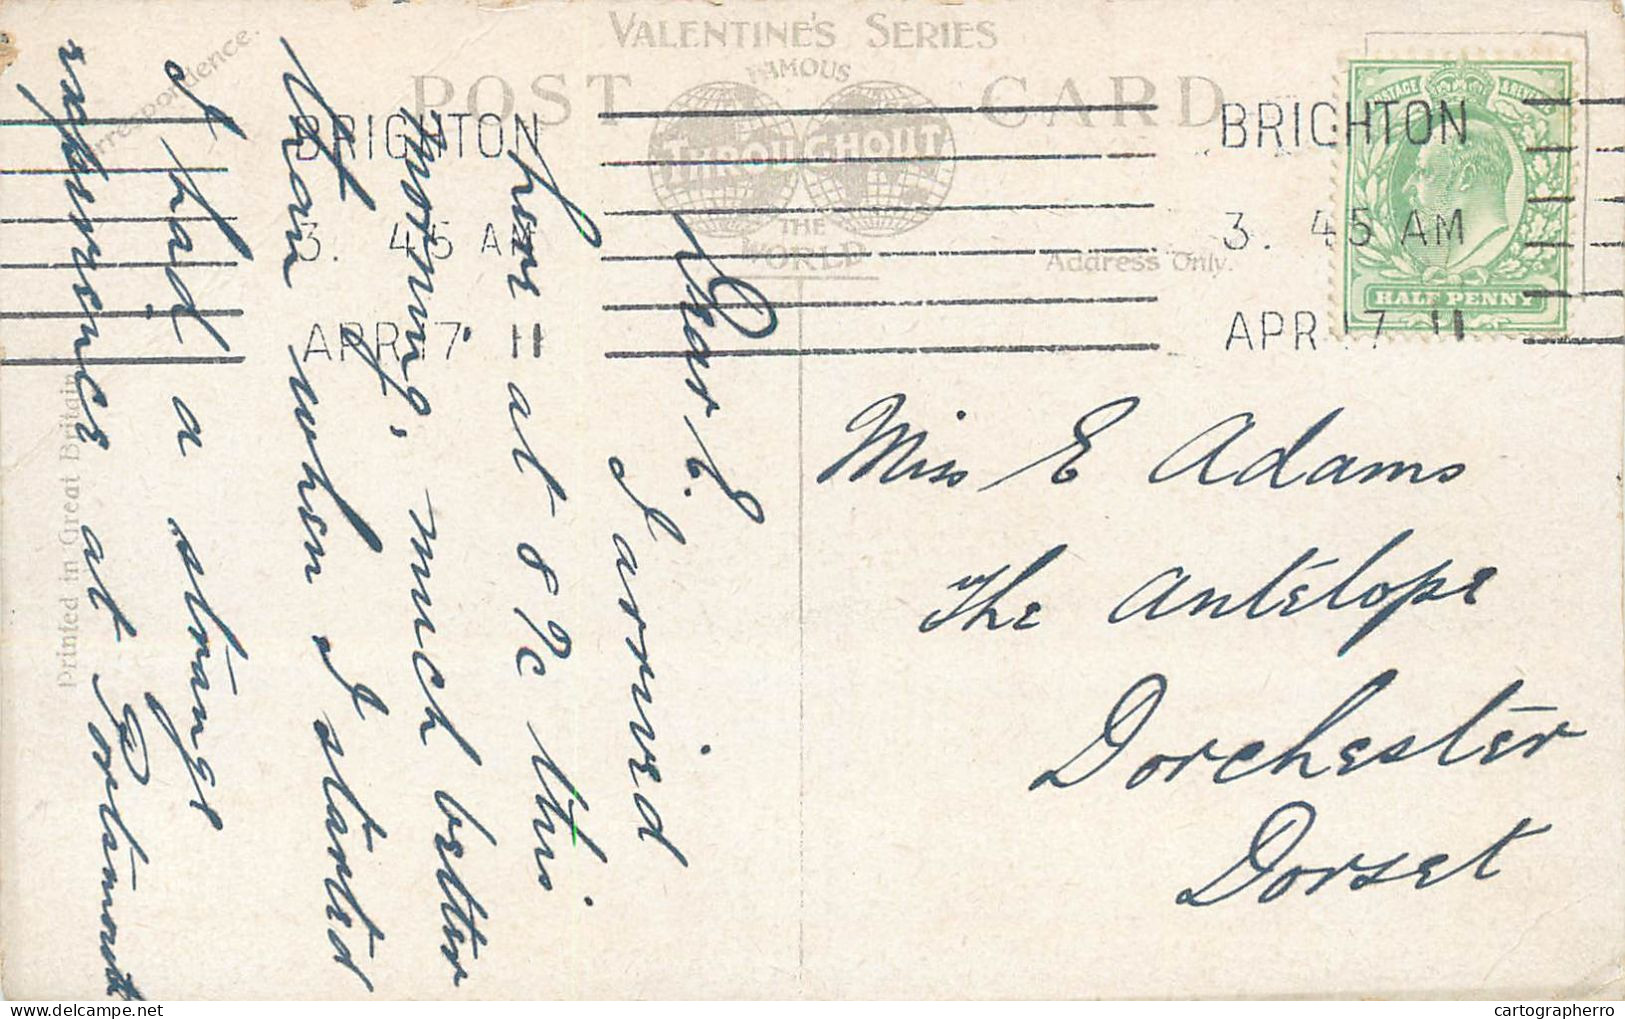 VALENTINE'S SERIES
FAMOUS
THROUGHOUT
THE
WORLD
POST CARD
Correspondence.
Address Only.
Printed in Great Britain
BRIGHTON
3. 45 AM
APR 17 11
BRIGHTON
3. 45 AM
APR 17 11
POSTAGE
HALF PENNY
Dear E.
I arrived
here at 8 o/c this
morning, much better
than when I started
I had a strange
experience at Portsmouth
Miss E Adams
The Antelope
Dorchester
Dorset
cartographerro